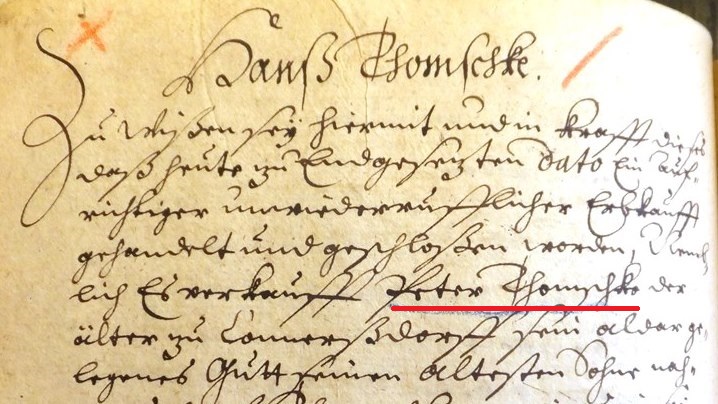 Hanß Thomschke.
Zu wißen sey hiermit und in krafft dieses
daß heute zu Endgesezten dato Ein auf-
richtiger unwiederrufflicher Erbkauff
gehandelt und geschloßen worden, Nem-
lich Es verkaufft Peter Thomschke der
älter zu Connerßdorff sein aldar ge-
legenes Gutt seinen ältesten Sohne nah-